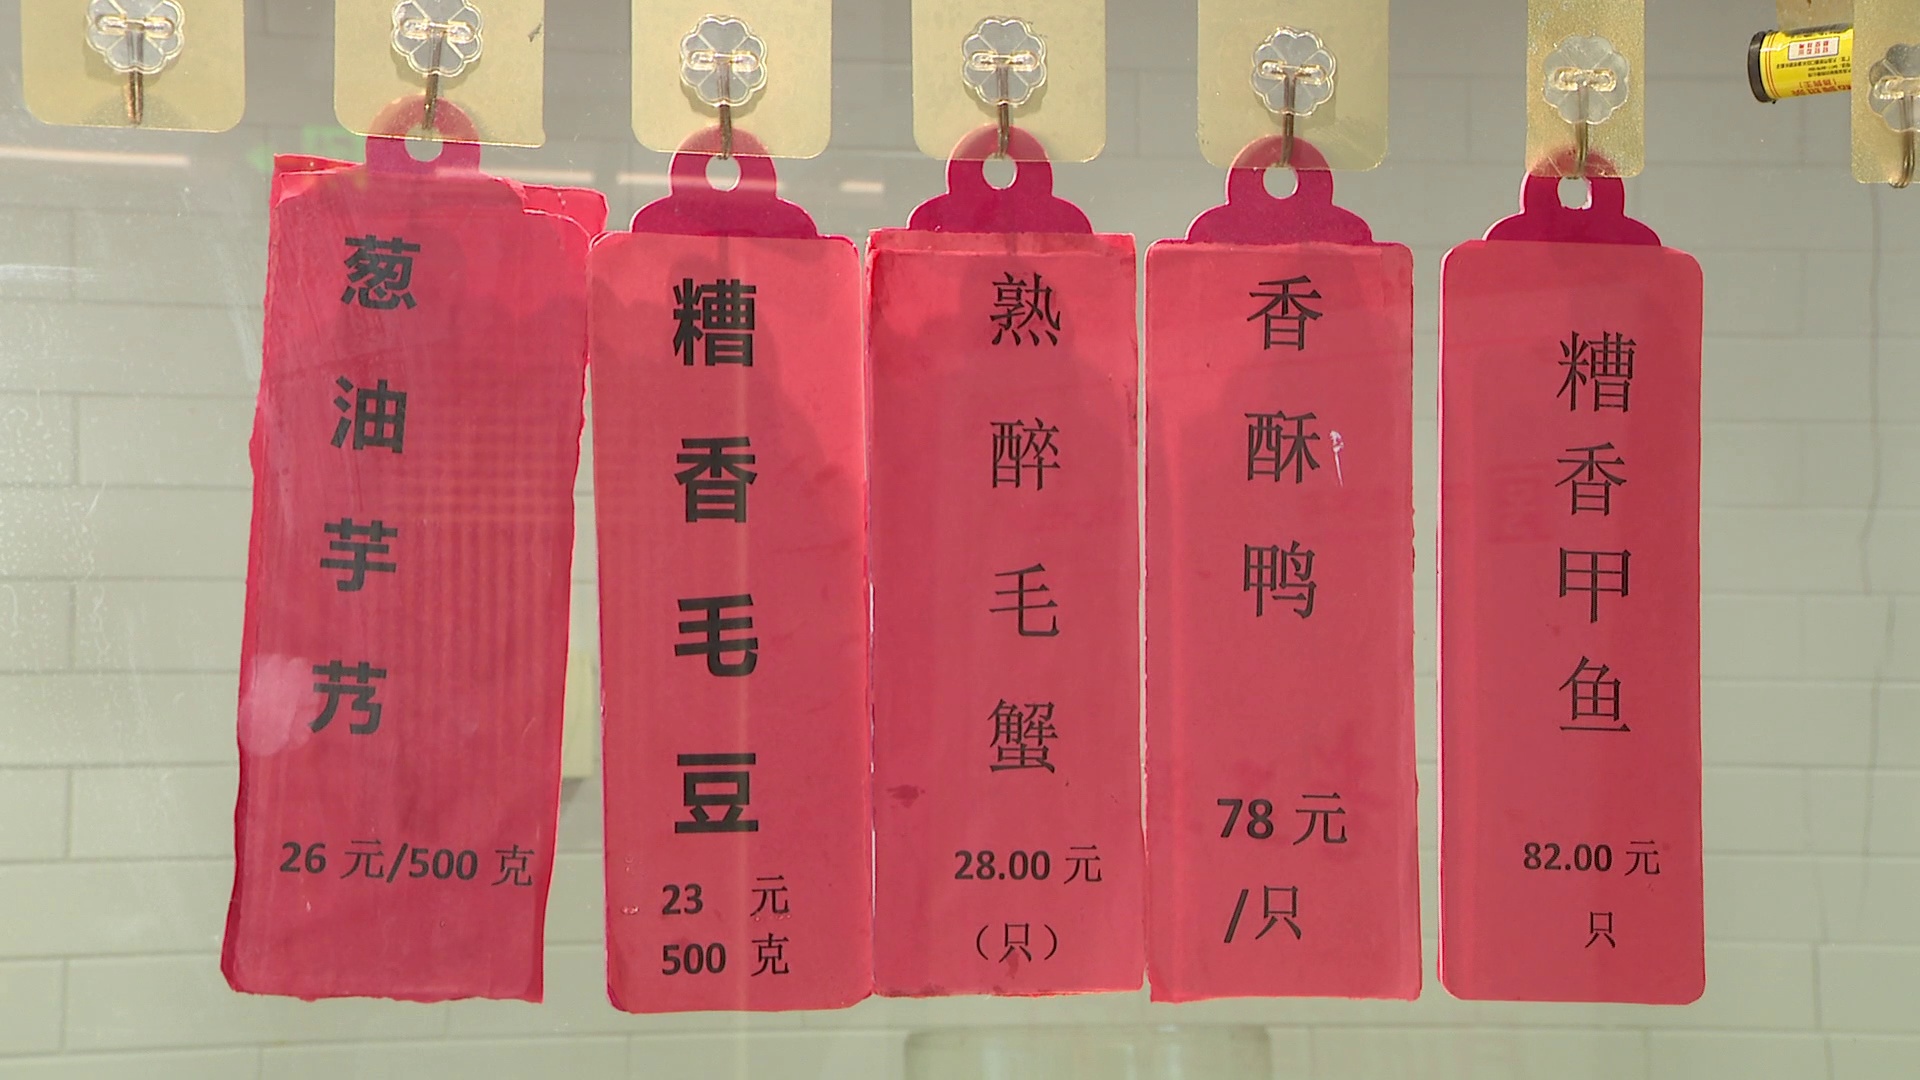 葱油芋艿
26 元/500 克
糟香毛豆
23 元
500 克
熟醉毛蟹
28.00 元
（只）
香酥鸭
78 元
/只
糟香甲鱼
82.00 元
只